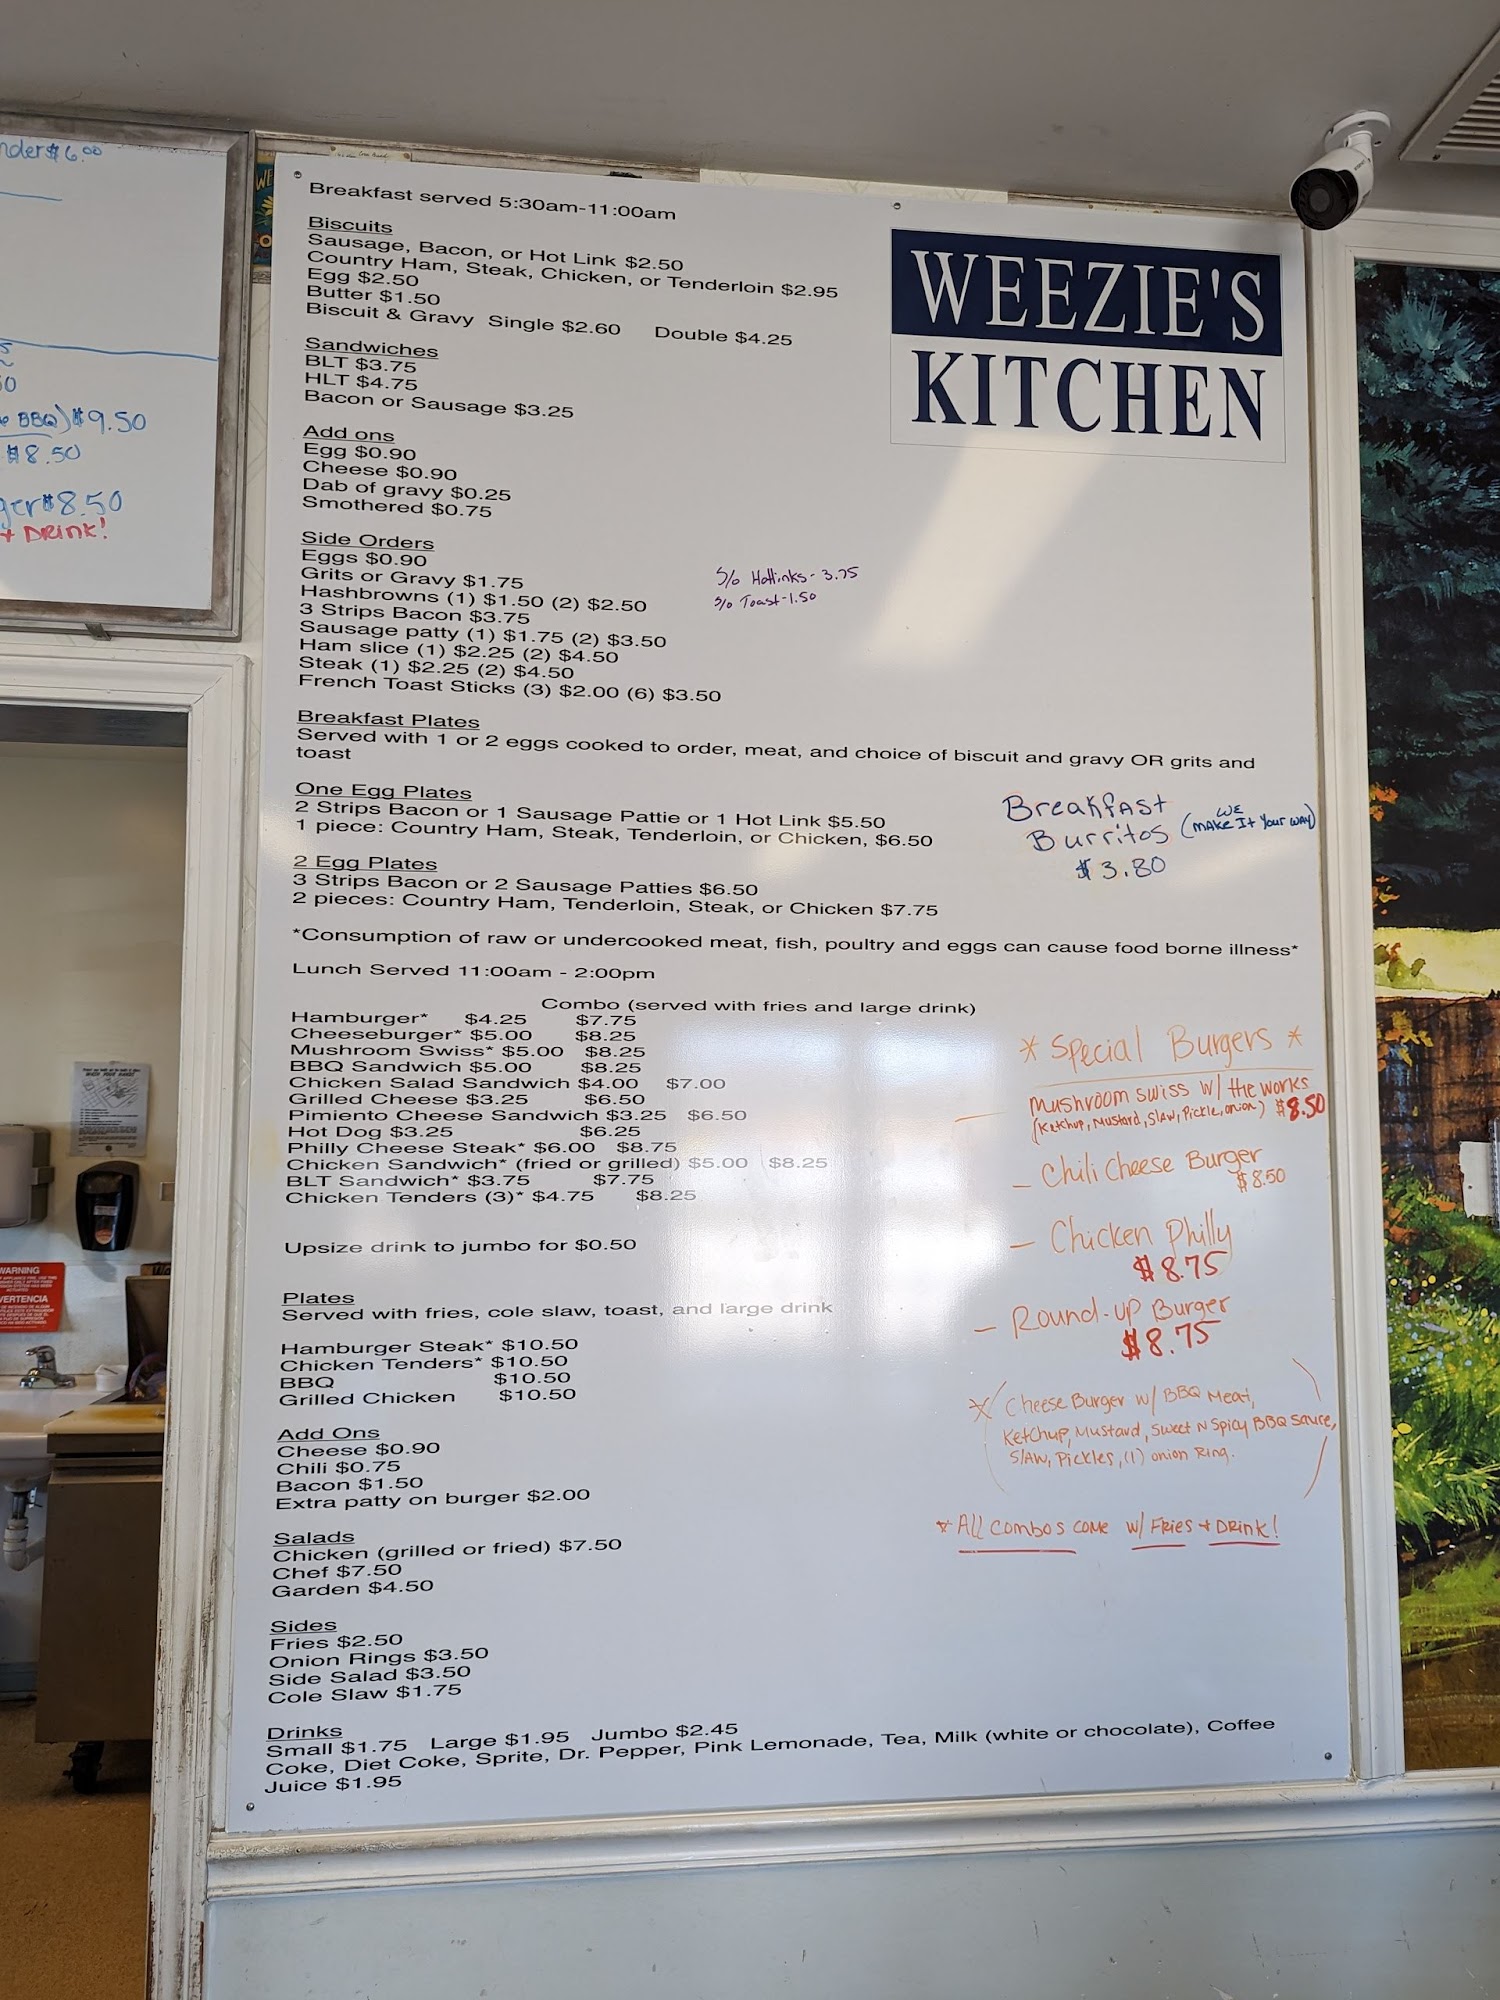 nder $6.00
BBQ) $9.50
$8.50
ger $8.50
+ Drink!
Breakfast served 5:30am-11:00am
WEEZIE'S
KITCHEN
Biscuits
Sausage, Bacon, or Hot Link $2.50
Country Ham, Steak, Chicken, or Tenderloin $2.95
Egg $2.50
Butter $1.50
Biscuit & Gravy Single $2.60 Double $4.25
Sandwiches
BLT $3.75
HLT $4.75
Bacon or Sausage $3.25
Add ons
Egg $0.90
Cheese $0.90
Dab of gravy $0.25
Smothered $0.75
Side Orders
Eggs $0.90
Grits or Gravy $1.75
Hashbrowns (1) $1.50 (2) $2.50
3 Strips Bacon $3.75
Sausage patty (1) $1.75 (2) $3.50
Ham slice (1) $2.25 (2) $4.50
Steak (1) $2.25 (2) $4.50
French Toast Sticks (3) $2.00 (6) $3.50
S/o Hotlinks - 3.75
S/o Toast - 1.50
Breakfast Plates
Served with 1 or 2 eggs cooked to order, meat, and choice of biscuit and gravy OR grits and
toast
One Egg Plates
2 Strips Bacon or 1 Sausage Pattie or 1 Hot Link $5.50
1 piece: Country Ham, Steak, Tenderloin, or Chicken, $6.50
2 Egg Plates
3 Strips Bacon or 2 Sausage Patties $6.50
2 pieces: Country Ham, Tenderloin, Steak, or Chicken $7.75
Breakfast
Burritos (We Make It Your Way)
$3.80
*Consumption of raw or undercooked meat, fish, poultry and eggs can cause food borne illness*
Lunch Served 11:00am - 2:00pm
Combo (served with fries and large drink)
Hamburger* $4.25 $7.75
Cheeseburger* $5.00 $8.25
Mushroom Swiss* $5.00 $8.25
BBQ Sandwich $5.00 $8.25
Chicken Salad Sandwich $4.00 $7.00
Grilled Cheese $3.25 $6.50
Pimiento Cheese Sandwich $3.25 $6.50
Hot Dog $3.25 $6.25
Philly Cheese Steak* $6.00 $8.75
Chicken Sandwich* (fried or grilled) $5.00 $8.25
BLT Sandwich* $3.75 $7.75
Chicken Tenders (3)* $4.75 $8.25
Upsize drink to jumbo for $0.50
Plates
Served with fries, cole slaw, toast, and large drink
Hamburger Steak* $10.50
Chicken Tenders* $10.50
BBQ $10.50
Grilled Chicken $10.50
Add Ons
Cheese $0.90
Chili $0.75
Bacon $1.50
Extra patty on burger $2.00
Salads
Chicken (grilled or fried) $7.50
Chef $7.50
Garden $4.50
Sides
Fries $2.50
Onion Rings $3.50
Side Salad $3.50
Cole Slaw $1.75
Drinks
Small $1.75 Large $1.95 Jumbo $2.45
Coke, Diet Coke, Sprite, Dr. Pepper, Pink Lemonade, Tea, Milk (white or chocolate), Coffee
Juice $1.95
* Special Burgers *
- Mushroom Swiss w/ the works
(Ketchup, Mustard, Slaw, Pickle, onion) $8.50
- Chili Cheese Burger
$8.50
- Chicken Philly
$8.75
- Round-up Burger
$8.75
* (Cheese Burger w/ BBQ Meat,
Ketchup, Mustard, Sweet N Spicy BBQ Sauce,
Slaw, Pickles, (1) onion Ring.)
* All Combos come w/ Fries + Drink!
WARNING